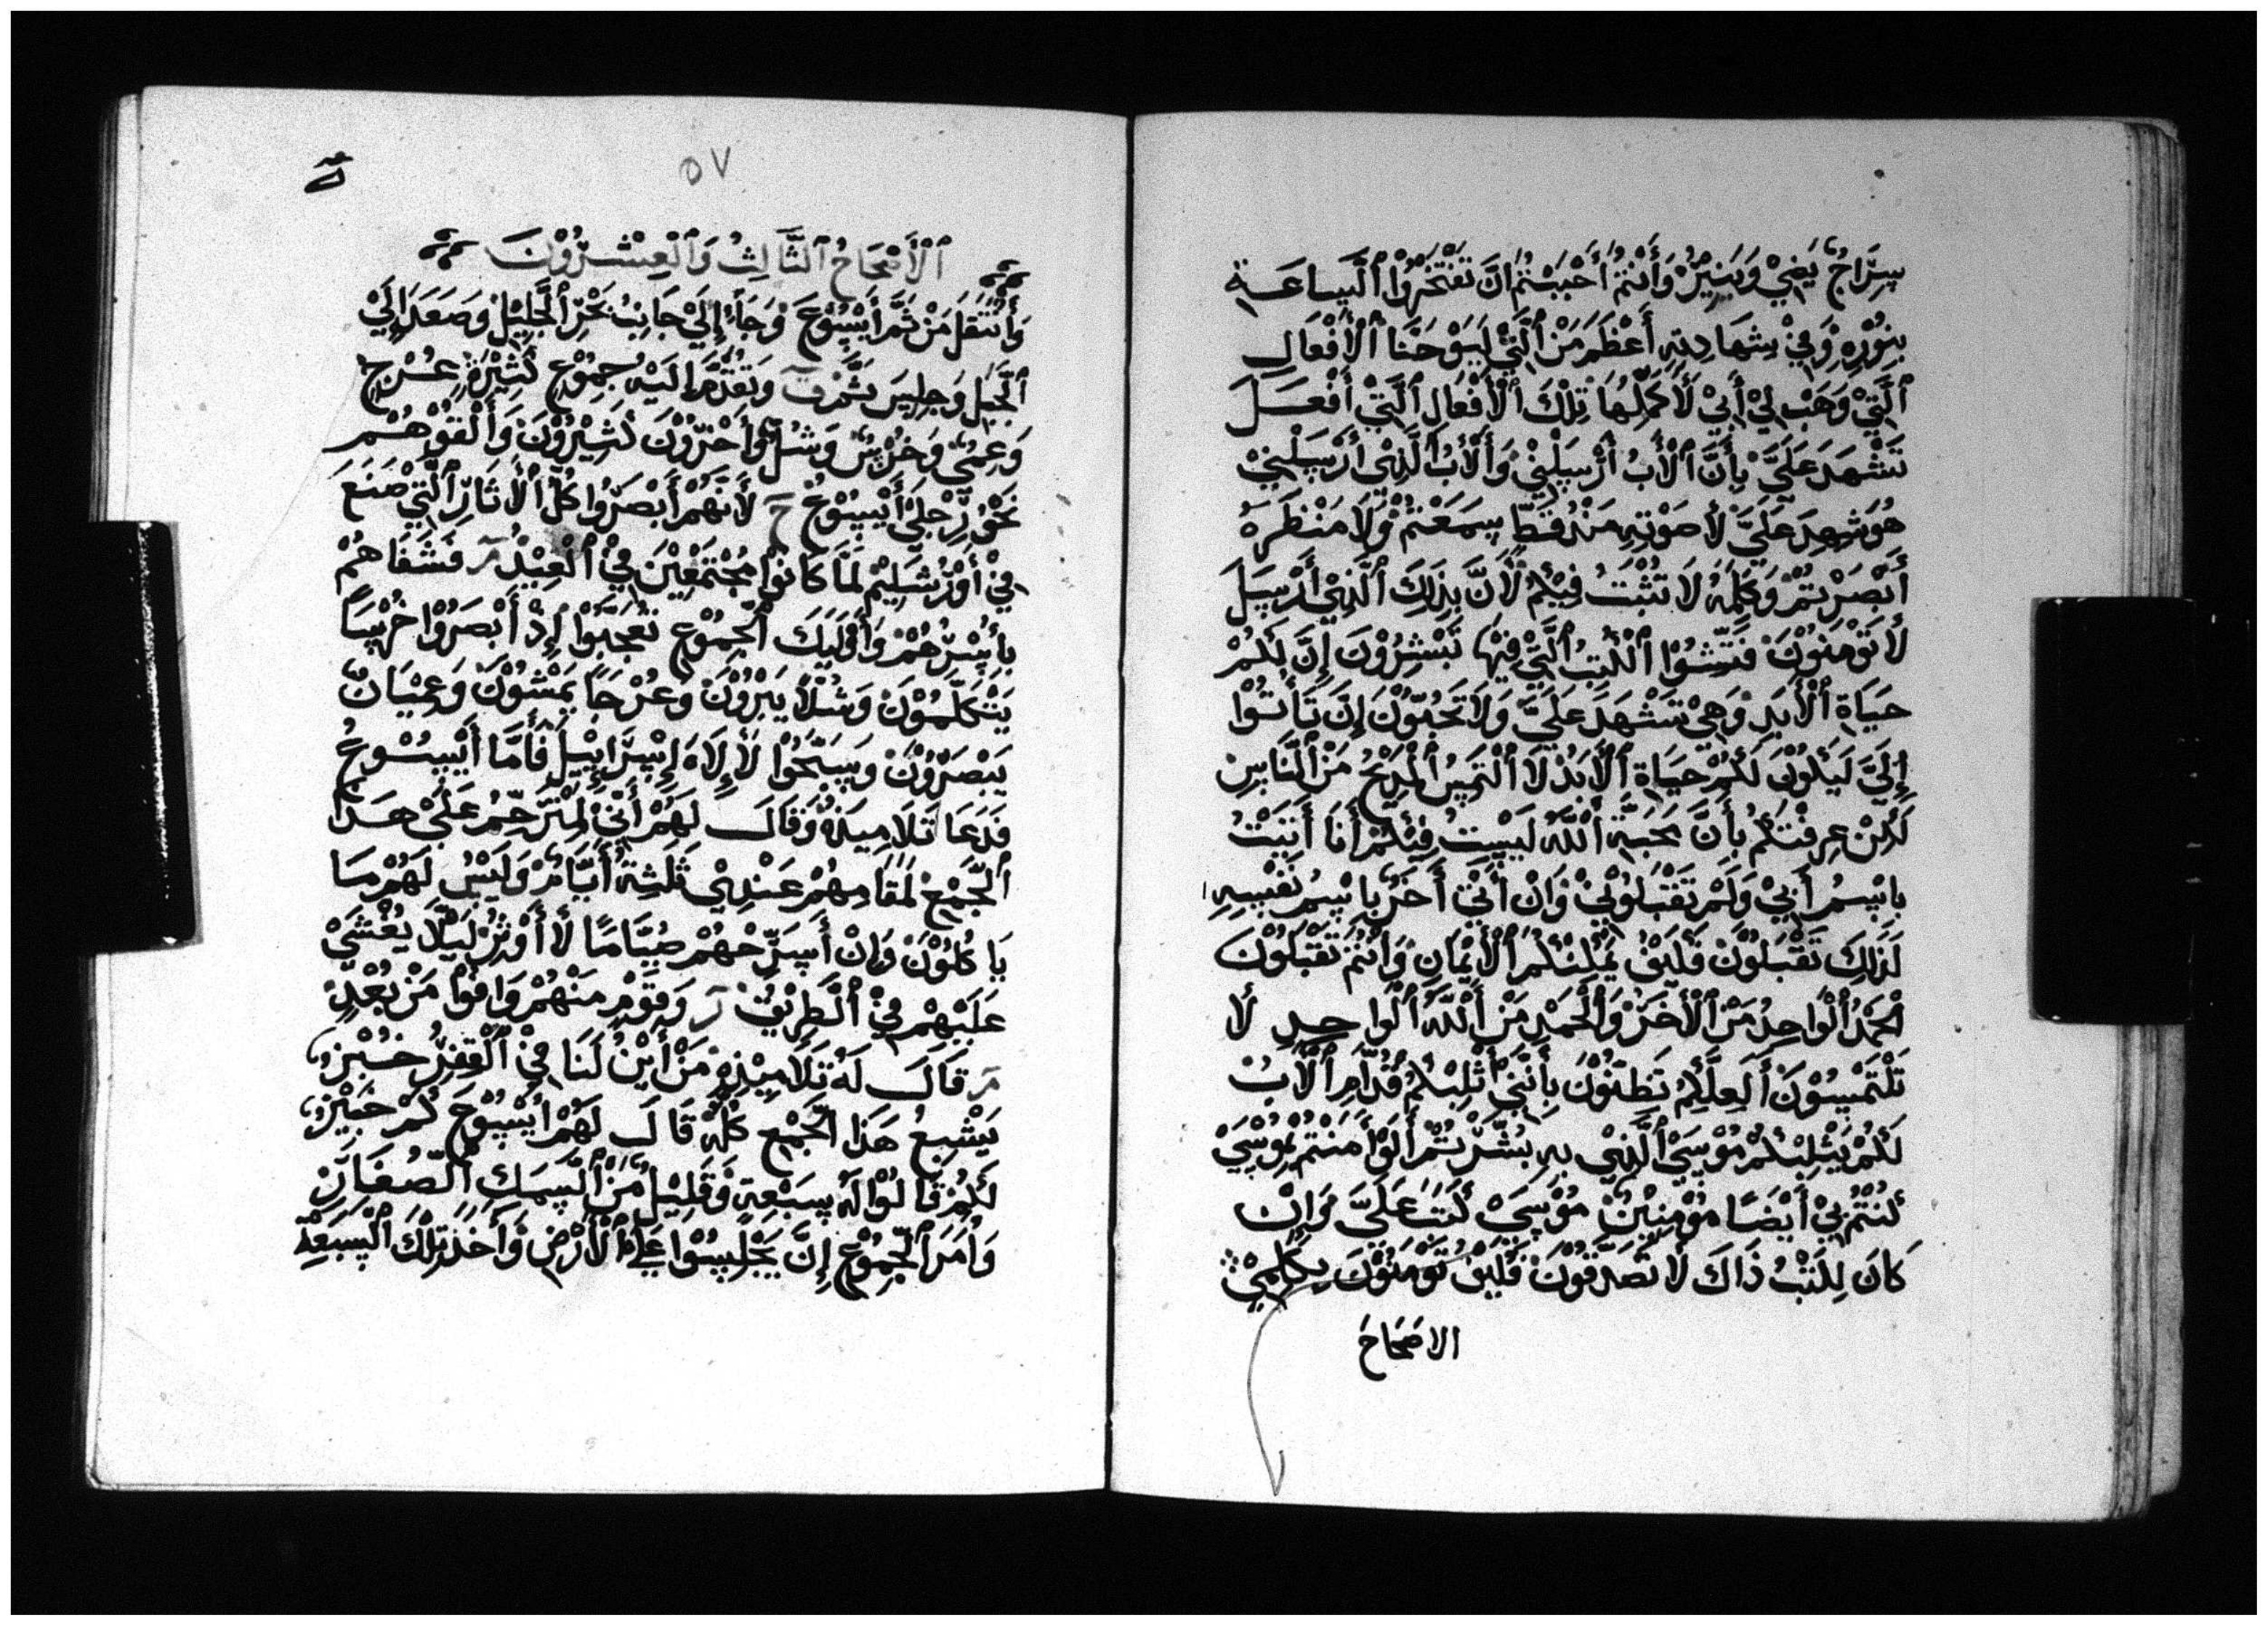 سِرَاجٌ يُضِيْ وَيَنِيْرُ وَأَنْتُمْ أَحْبَبْتُمْ انَّ تَفْتَخِرُوْا ٱلسَّاعَـة
بِنُوْرِهِ وَفِيْ شِهَادِتِهِ أَعْظَمَ مَنْ ٱلَّتِيْ لِيَوْحَنَّا ٱلْأَفْعَال
ٱلَّتِيْ وَهَبْ لِيْ أَبِيْ لَأكَمِّلُهَا تِلْكَ ٱلْأَفْعَال ٱلَّتِيْ أَفْعَـل
تَشْهَدَ عَلَيَّ بِأَنَّ ٱلْأَبُ أَرْسَلَنِيْ وَٱلْأَبُ ٱلَّذِيْ أَرْسَلَنِيْ
هُوَ شَهِدَ عَلَيَّ لَأ صَوْتِهِ مَنْذُ قَطّ سِمَعْتُمْ وَلَا مَنْظَرَهُ
أَبْصَرْتُمْ وَكَلِمَهُ لَا تُثْبَتُ فِيْكُمْ لَأَنَّ بِذَلِكَ ٱلَّذِيْ أَرْسَلَ
لَأ تَوْمِنُوْنَ فَتِّشُوْا ٱلْكُتِبُ ٱلَّتِيْ فِيْهَا تَبْشِرُوْنَ إِنَّ لِكُمْ
حَيَاة ٱلْأَبَدِ وَهِيَ تَشْهَدَ عَلَيَّ وَلَا تَحِبُّوْنَ إِنَّ تَأتُوْا
إِلَيَّ لَيَكُوْنَ لَكُمْ حَيَاة ٱلْأَبَدْ لَا ٱلْتَمِسُ ٱلْمَدِيْحُ مَنَ ٱلنَّاسِ
لَكِنْ عِرِفْتُكُمْ بِأَنَّ مَحَبَّة ٱللهْ لَيْسَتْ فِيْكُمْ أَنَا أَتَيْتُ
بِاسِمُ أَبِيْ وَلَمْ تَقْبَلُوْنِيْ وَانْ أَتَى أَخَرْ بِاسِمُ نَفْسِهِ
لَذَلِكَ تَقْبَلُوْنَ فَكَيْفَ يِمْكِنْكُمْ ٱلْأَيْمَانِ وَانْتُمْ تَقْبَلُوْنَ
ٱلْحَمْدُ ٱلْوَاحِدُ مَنَ ٱلْأَخَرْ وَٱلْحَمْدِ مَنْ ٱللهْ ٱلْوَاحِدِ لَأ
تَلْتَمِسُوْنَ أَلَعِلَّكُمْ تَظِنُّوْنَ بِأَنَنِيْ أَثْلِبْكُمْ قُدَّامِ ٱلْأَبُ
لَكُمْ يَثْلِبْكُمْ مُوْسَيْ ٱلَّذِيْ بِهِ بُشِّرْتُمْ أَلَوْ أَمَنْتُمْ لِمُوْسَيْ
لَكُنْتُمْ بِيْ أَيْضًا مُؤْمِنِيْنَ مُوْسَيْ كَتَبَ عَلَيَّ وَإِنْ
كَانَ لِكَتْبُ ذَاكَ لَا تَصَدِّقُوْنَ فَكَيْفَ تَوْمِنُوْنَ بِكَلِمِيْ
الاصَحَاحَ
٥٧
ٱلْأَصْحَاحُ ٱلثَّالِثُ وَٱلْعِشْـرُوْنَ
وَأَنْتَقَلَ مَنْ ثَمَّ أَيْسُوْعَ وَجَاءَ إِلَيْ جَانِبُ بَحْرُ ٱلْجَلِيْلْ وَصَعَدَ إِلَيْ
ٱلْجَبَلِ وَجِلِسَ ثَمَّ وَتَقَدَّمَ إِلَيْهِ جِمُوْعِ كَثِيْرَة عُـرْجٍ
وَعِمْيٌ وَخُرْسٌ وَشُلٌّ وَأَخَرُوْنَ كَثِيْرُوْنَ وَأَلْقَوْهُـمْ
نَحْوُ رِّجِلَيْ أَيْسُوْعْ لَأَنَّهُمْ أَبْصَرُوْا كُلّ ٱلْأَثَارِ ٱلَّتِيْ صَنَعَ
فِيْ أَوْرُشَلِيْمْ لَمَّا كَانُوْا مُجْتَمَعِيْنَ فِيْ ٱلْعِيْدْ فَشَفَاهُمْ
بِأَسْرِهُمْ وَأُوْلَيَكَ ٱلْجِمُوْعِ تَعَجَّبُوْا إِذْ أَبْصَرُوْا خُرْسًا
يَتَكَلَّمُوْنَ وَشُلًّا يَبْرُوْنَ وَعُرْجًا يَمْشُوْنَ وَعِمْيَانٌ
يَبْصِرُوْنَ وَيَسَبِّحُوْا لَأِلَاهَ إِسْرَايِيْلَ فَأَمَّا أَيْسُـوْعُ
فَدَعَا تَلَامِيذَهُ وَقَالَ لَهُمْ أَنِّيْ لِمْتَرَحِّمُ عَلَيْ هَـذَا
ٱلْجَمْعِ لَمَقَامِهُمْ عَنْدِيْ ثَلَثِة أَيَّامْ وَلَيْسُ لَهُمْ مَـا
يَاكُلُوْنَ وَإِنْ أَسَرِّحْهُمْ صِيَّامًا لَأ أَوْثِرْ لَيَلَّا يُغْشَيْ
عَلَيْهُمْ فِيْ ٱلْطَرِيْقْ وَقَوْمِ مِنْهُمْ وَافَوْا مَنْ بُعْدِ
قَالَ لَهُ تَلَامِيْذِهِ مَنْ أَيْنُ لَنَا فِيْ ٱلْقِفِرْ خُبْزٌ
يَشْبِعُ هَذَا ٱلْجَمْعِ كُلّهُ قَالَ لَهُمْ أَيْسُوْعَ كُمْ خَبْزٌ
لَكُمْ قَالُوْا لَهُ سِبْعَة وَقَلِيْلٌ مَنَ ٱلسَّمَكِ ٱلصُّغَارِ
وَأَمَرَ ٱلْجِمُوْعِ إِنَّ يَجْلِسُوْا عَلَيْ ٱلْأَرْضِ وَأَخَذَ تِلْكَ ٱلْسَبَعِةْ